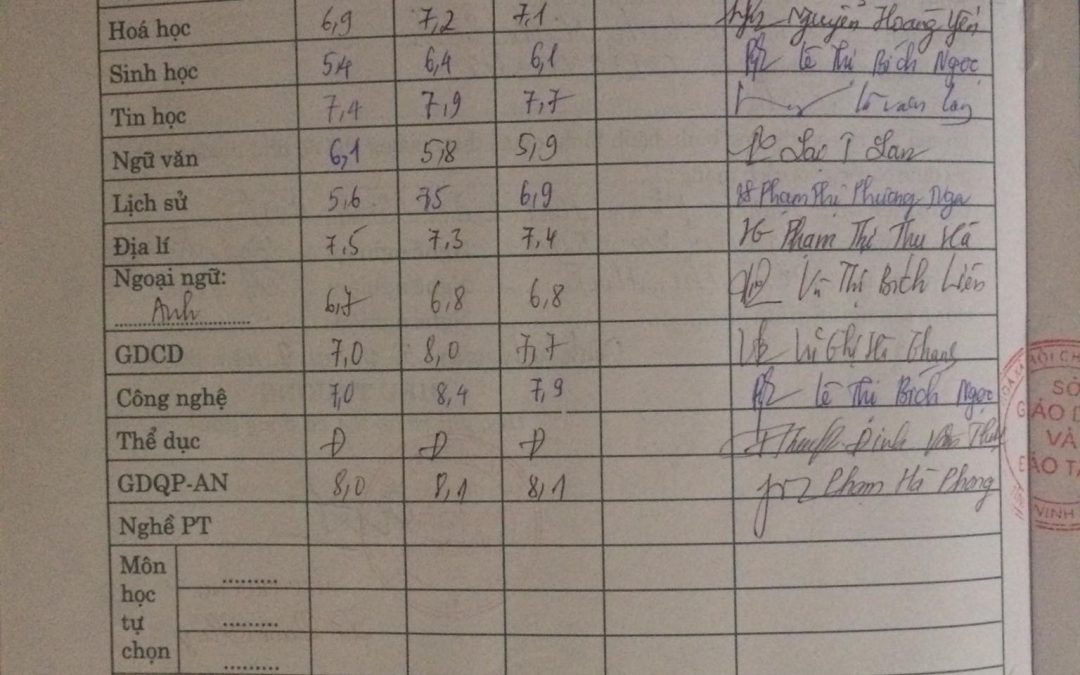 Hoá học 6,9 7,2 7,1 Nguyễn Hoàng Yến
Sinh học 5,4 6,4 6,1 Lê Thị Bích Ngọc
Tin học 7,4 7,9 7,7
Ngữ văn 6,1 5,8 5,9 Lan
Lịch sử 5,6 75 6,9 Phạm Thị Phương Nga
Địa lí 7,5 7,3 7,4 Phạm Thị Thu Hà
Ngoại ngữ:
Anh 6,7 6,8 6,8 Vũ Thị Bích Liên
GDCD 7,0 8,0 7,7
Công nghệ 7,0 8,4 7,9 Lê Thị Bích Ngọc
Thể dục Đ Đ Đ Đinh Văn
GDQP-AN 8,0 8,1 8,1 Phạm Hà Phong
Nghề PT
Môn
học
tự
chọn
SỞ
GIÁO D
VÀ
ĐÀO TẠ
VINH